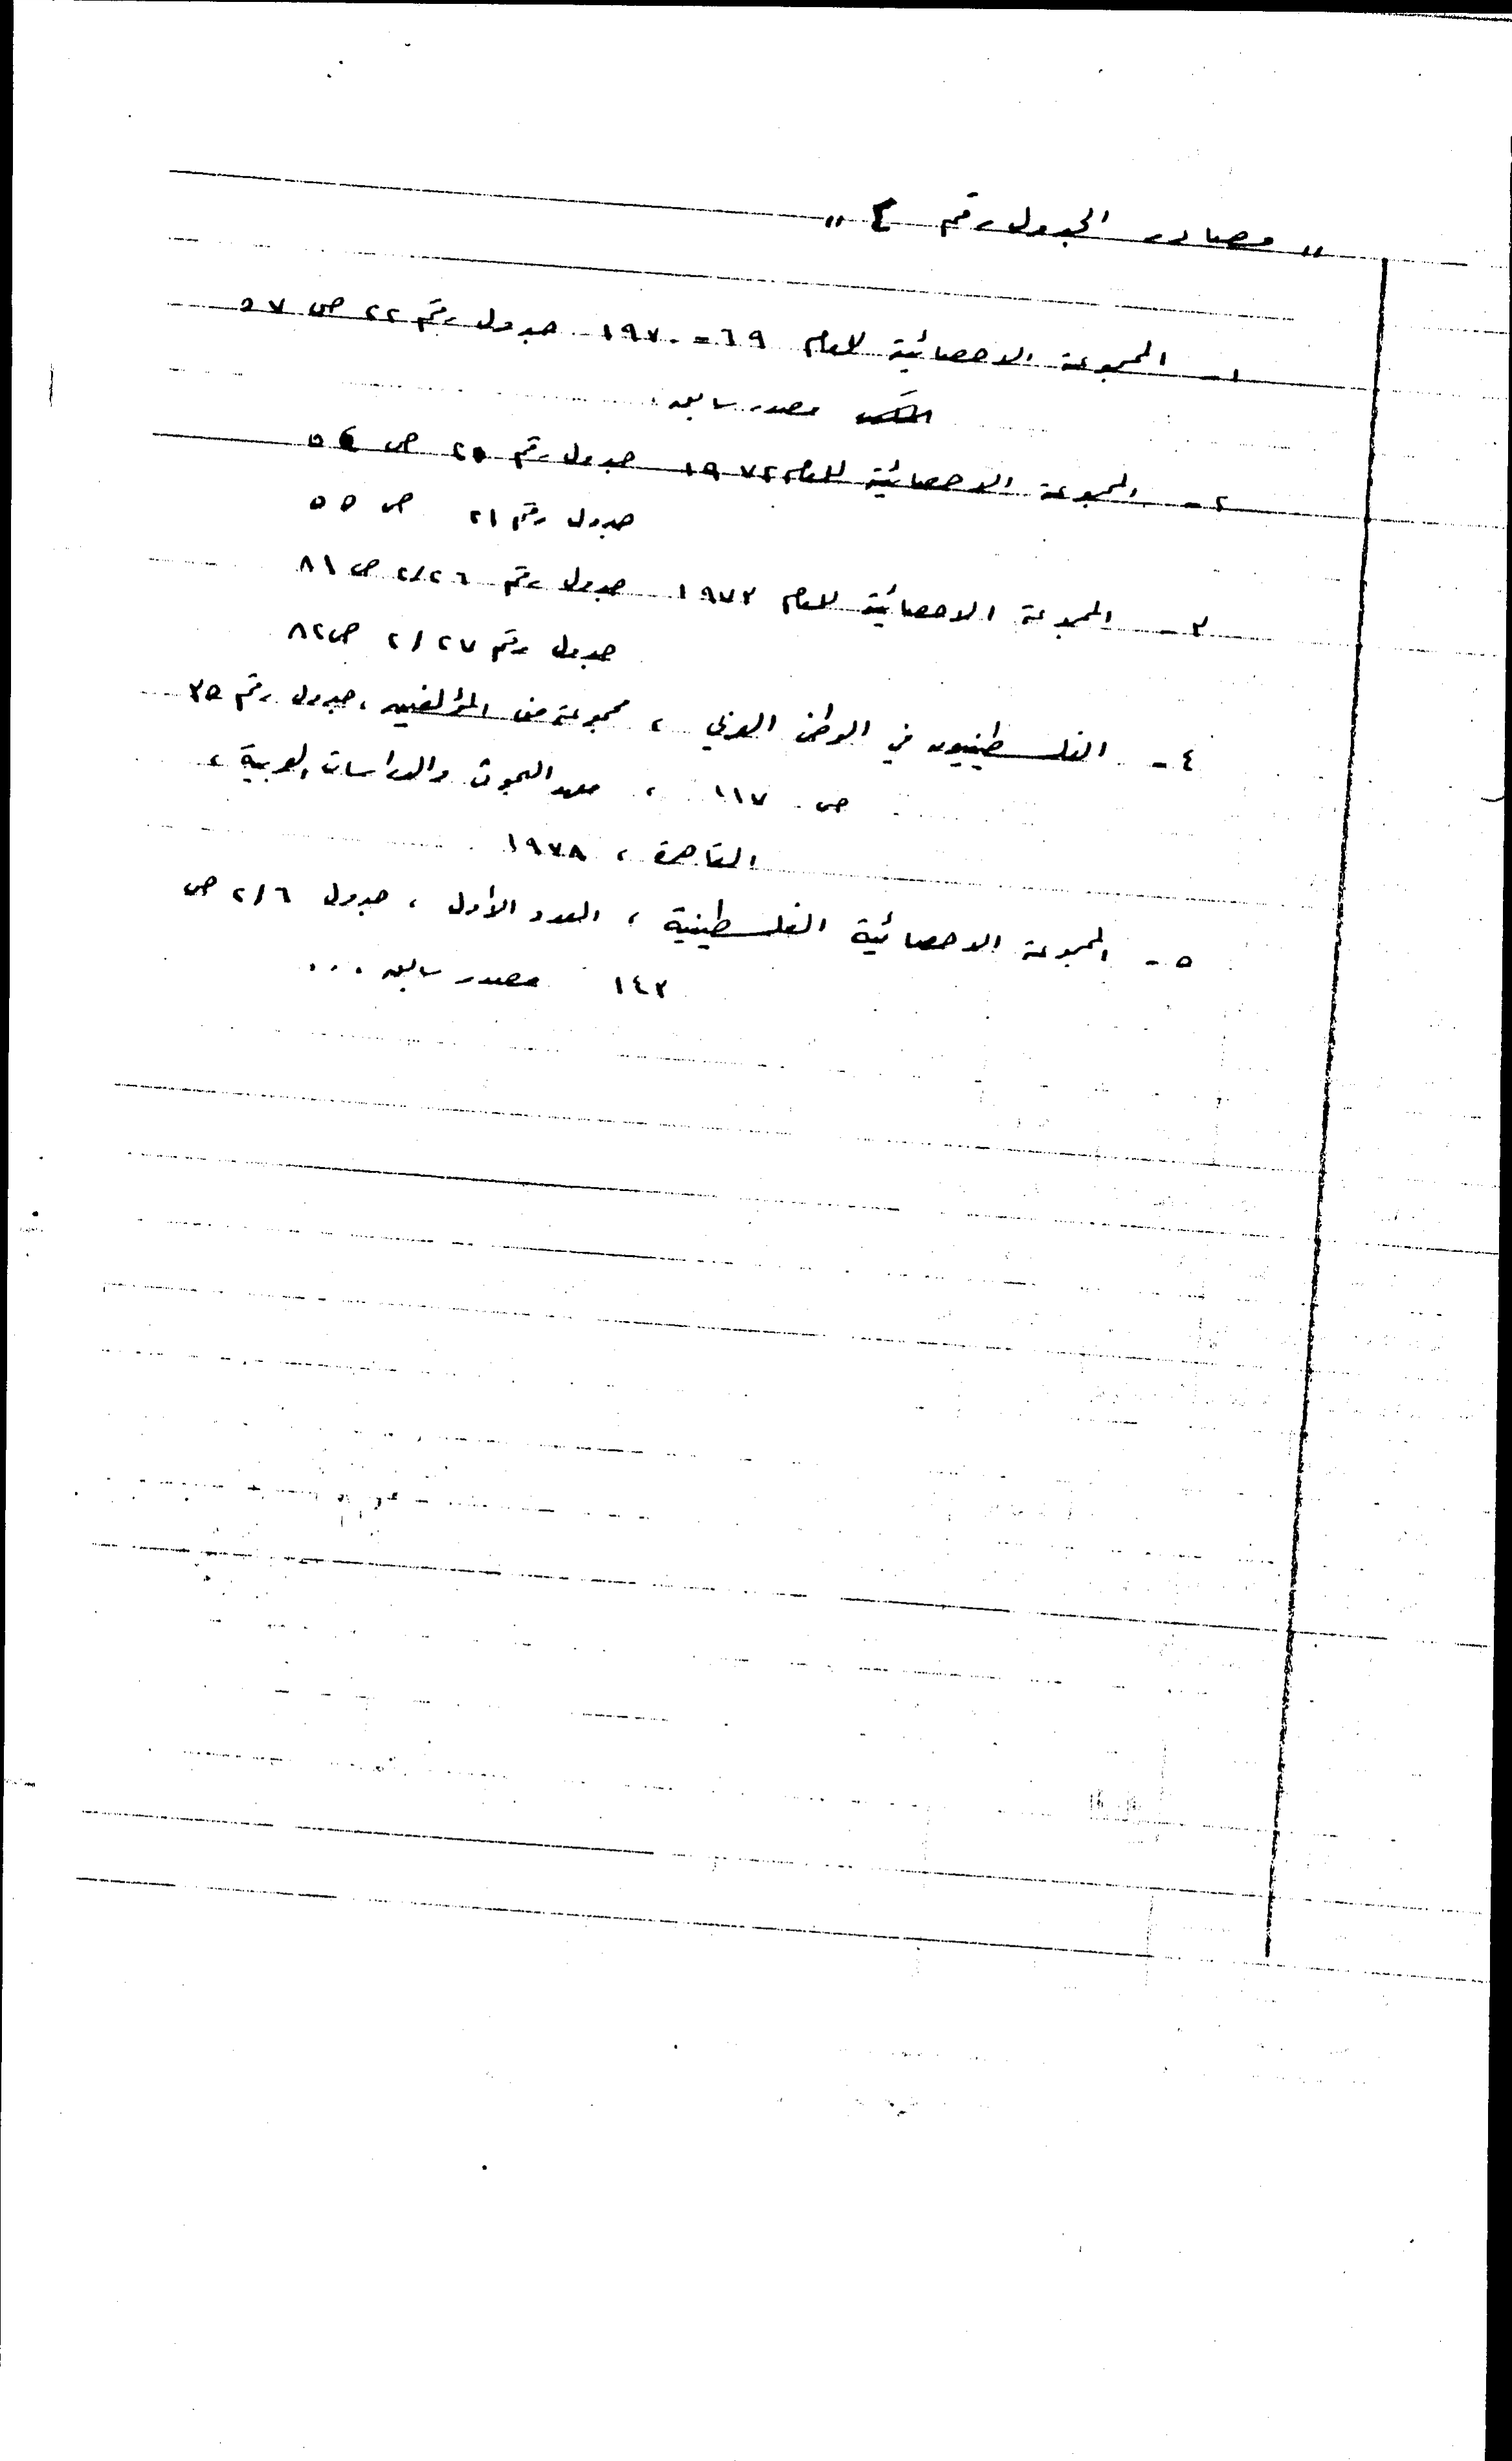 " مصادر الجدول رقم ٤ "
١ـ المجموعة الاحصائية للعام ٦٩ = ١٩٧٠ جدول رقم ٢٢ ص ٥٧
مصدر سابق .
٢ـ المجموعة الاحصائية للعام ١٩٧٢ جدول رقم ٢٠ ص ٥٤
جدول رقم ٢١ ص ٥٥
٣ـ المجموعة الاحصائية للعام ١٩٧٣ جدول رقم ٢/٢٦ ص ٨١
جدول رقم ٢/٢٧ ص ٨٢
٤ـ الفلسطينيون في الوطن العربي ، مجموعة من المؤلفين ، جدول رقم ٣٥
ص ١١٧ ، معهد البحوث والدراسات العربية ،
القاهرة ، ١٩٧٨
٥ـ المجموعة الاحصائية الفلسطينية ، العدد الأول ، جدول ٢/٦ ص
١٤٣ مصدر سابق ...